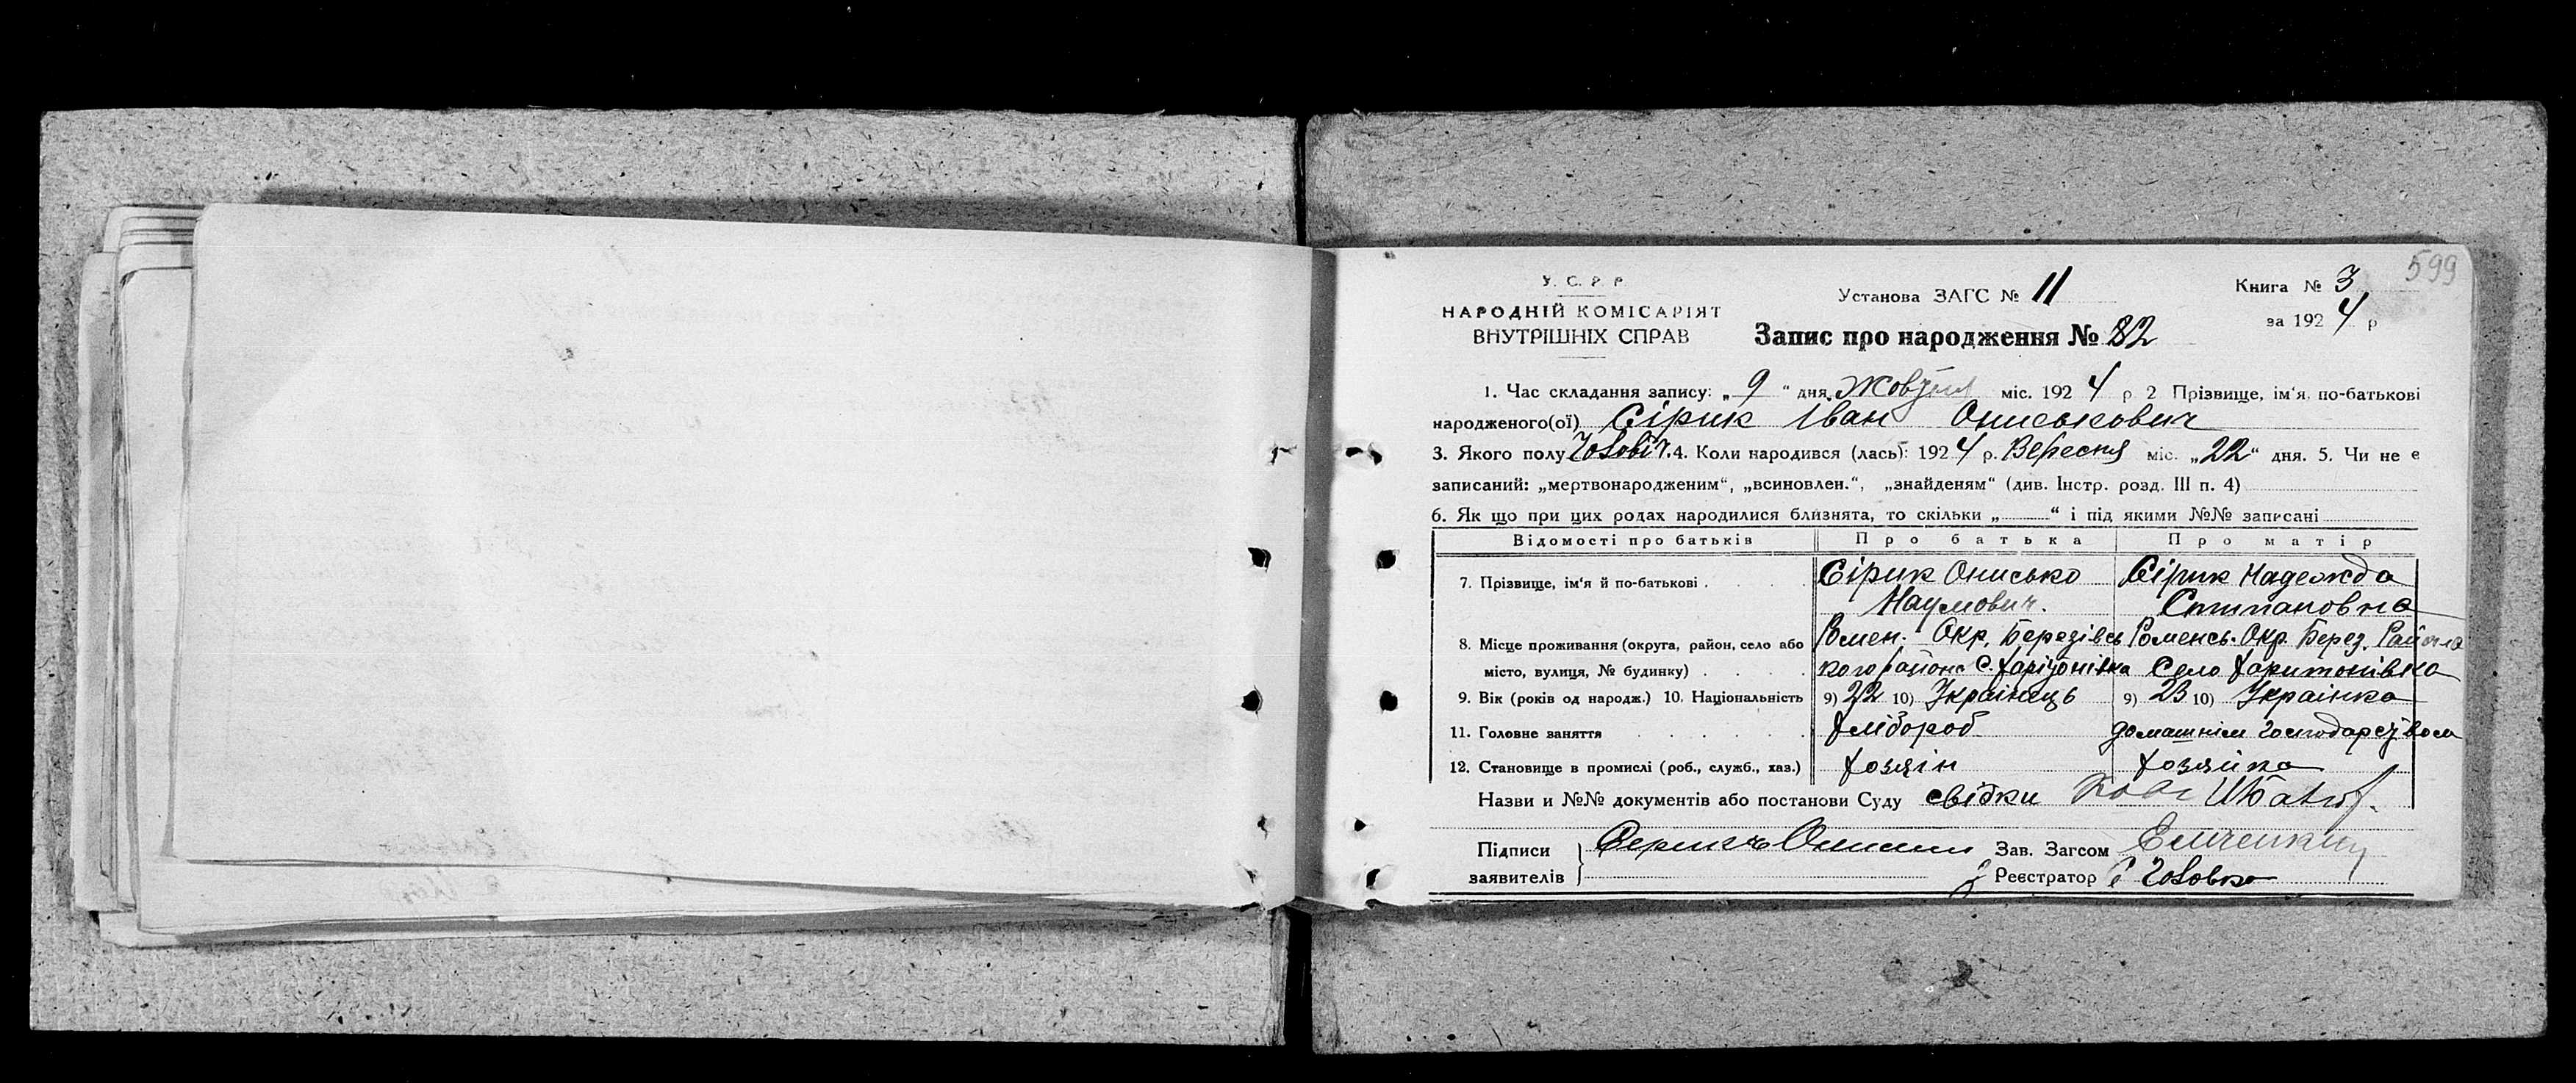 599
У. С. Р. Р.
НАРОДНІЙ КОМІСАРІЯТ
ВНУТРІШНІХ СПРАВ
Установа ЗАГС № 11
Книга № 3
за 1924 р
Запис про народження № 82
1. Час складання запису: „9“ дня Жовтня міс. 1924 р 2 Прізвище, ім'я, по-батькові
народженого(ої) Сірик Іван Ониськович
3. Якого полу Чоловіч. 4. Коли народився (лась): 1924 р. Вересня міс. „22“ дня. 5. Чи не є
записаний: „мертвонародженим“, „всиновлен.“, „знайденям“ (див. Інстр. розд. III п. 4)
6. Як що при цих родах народилися близнята, то скільки „ “ і під якими №№ записані
Відомості про батьків Про батька Про матір
7. Прізвище, ім'я й по-батькові Сірик Онисько Сірик Надежда
Наумович. Степановна
8. Місце проживання (округа, район, село або Ромен. Окр. Березівсь Роменсь. Окр. Берез. Району
місто, вулиця, № будинку) кого района с. Харітонівка Село Харитонівка
9. Вік (років од народж.) 10. Національність 9) 22 10) Українець 9) 23 10) Українка
11. Головне заняття Хлібороб домашнім господарством
12. Становище в промислі (роб., служб., хаз.) Хозяін Хозяйка
Назви и №№ документів або постанови Суду свідки
Підписи
заявителів
Зав. Загсом
Реєстратор